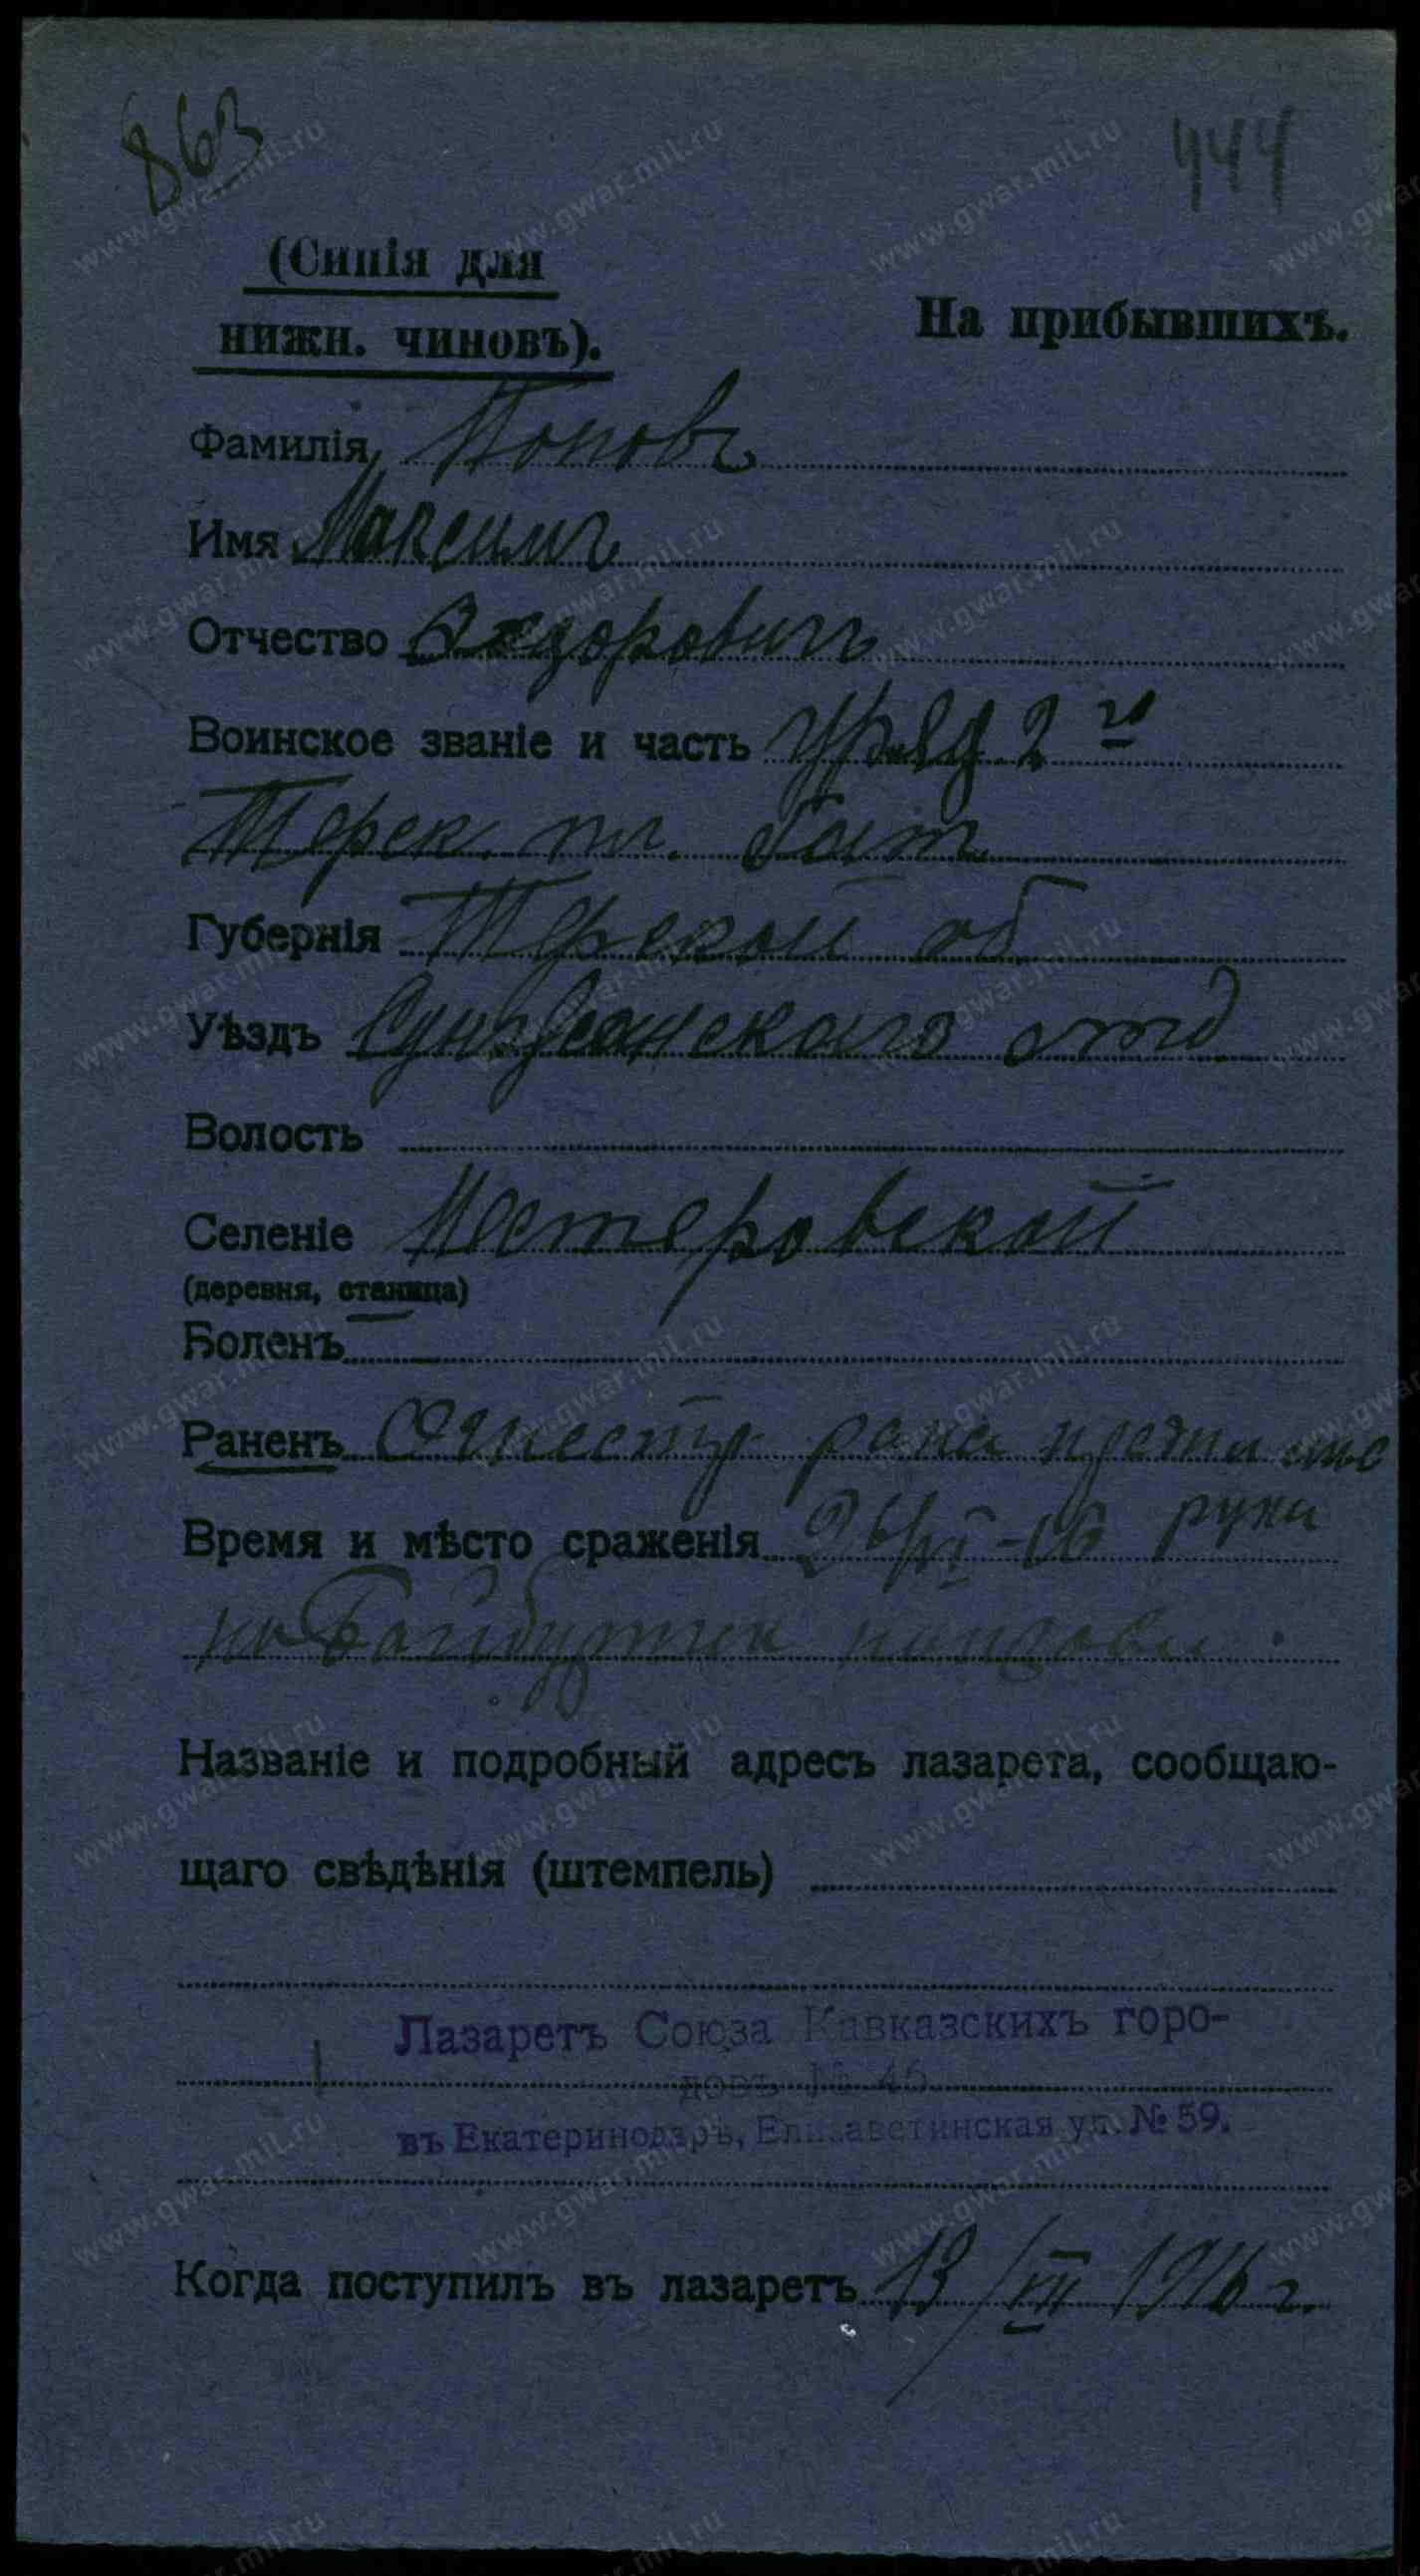 863
444
(Синія для
нижн. чиновъ).
На прибывшихъ.
Фамилія Поповъ
Имя Максимъ
Отчество Федоровичъ
Воинское званіе и часть уряд. 2 го
Терек. пл. бат.
Губернія Терской об
Уѣздъ Сунженскаго отд
Волость
Селеніе Нестеровской
(деревня, станица)
Боленъ
Раненъ Огнестр рана предплеч
руки
Время и мѣсто сраженія -16
Байбуртск
Названіе и подробный адресъ лазарета, сообщаю-
щаго свѣдѣнія (штемпель)
Лазаретъ Союза Кавказскихъ горо-
довъ № 45
въ Екатеринодарѣ, Елизаветинская ул. № 59.
Когда поступилъ въ лазаретъ 13/VII 1916 г.
www.gwar.mil.ru